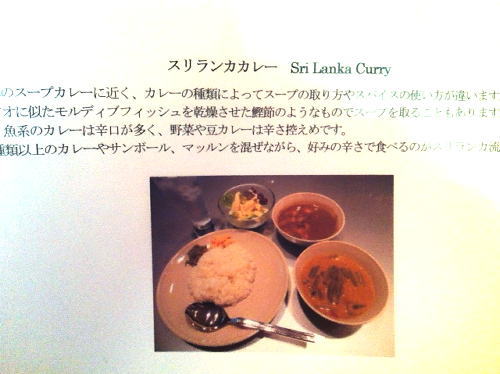 スリランカカレー Sri Lanka Curry
のスープカレーに近く、カレーの種類によってスープの取り方やスパイスの使い方が違います
オに似たモルディブフィッシュを乾燥させた鰹節のようなものでスープを取ることもあります
魚系のカレーは辛口が多く、野菜や豆カレーは辛さ控えめです。
種類以上のカレーやサンボール、マッルンを混ぜながら、好みの辛さで食べるのがスリランカ流